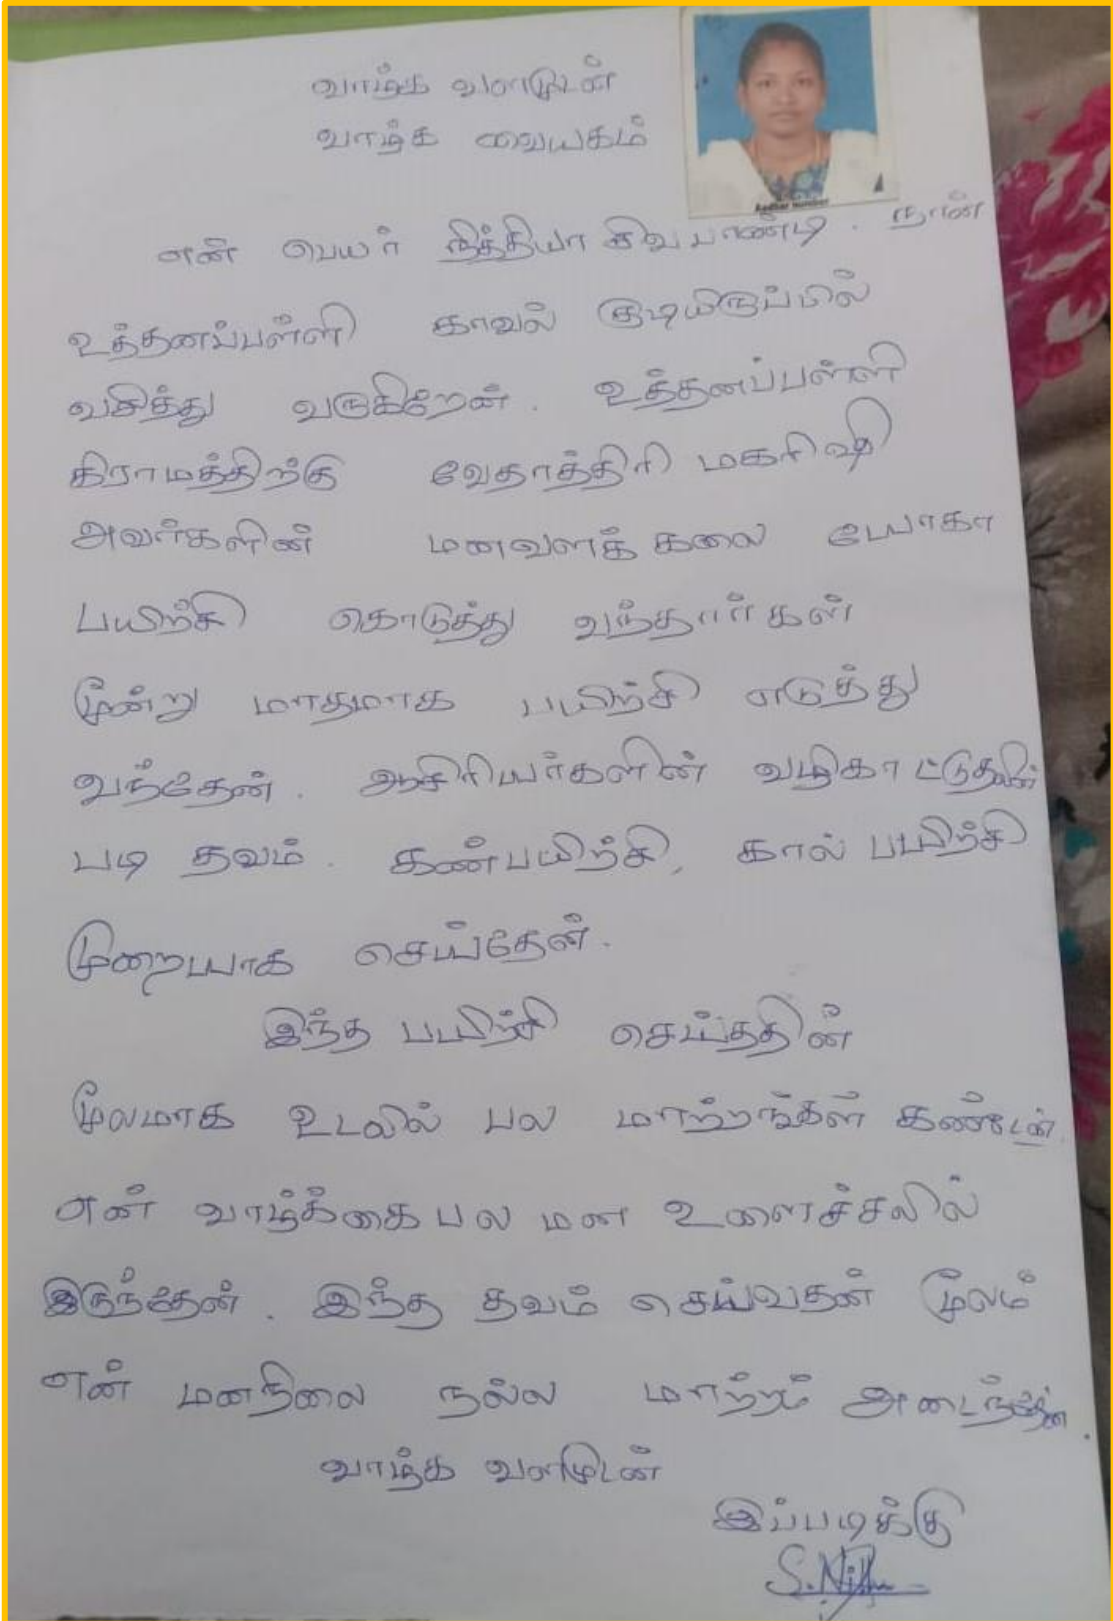 வாழ்க வளமுடன்
வாழ்க வையகம்
Aadhar Number
என் பெயர் நித்தியா சிவபாண்டி. நான்
உத்தனப்பள்ளி காவல் குடியிருப்பில்
வசித்து வருகிறேன். உத்தனப்பள்ளி
கிராமத்திற்கு வேதாத்திரி மகரிஷி
அவர்களின் மனவளக் கலை யோகா
பயிற்சி கொடுத்து வந்தார்கள்
மூன்று மாதமாக பயிற்சி எடுத்து
வந்தேன். ஆசிரியர்களின் வழிகாட்டுதலின்
படி தவம். கண்பயிற்சி, கால் பயிற்சி
முறையாக செய்தேன்.
இந்த பயிற்சி செய்ததின்
மூலமாக உடலில் பல மாற்றங்கள் கண்டேன்.
என் வாழ்க்கை பல மன உளைச்சலில்
இருந்தேன். இந்த தவம் செய்வதன் மூலம்
என் மனநிலை நல்ல மாற்றம் அடைந்தேன்.
வாழ்க வளமுடன்
இப்படிக்கு